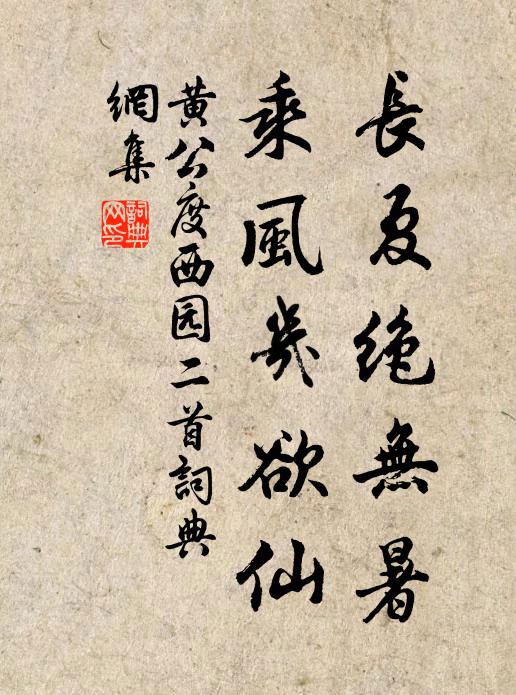 長夏絶無暑
乘風幾欲仙
黄公度西园二首詞典
網集
詞典
网印